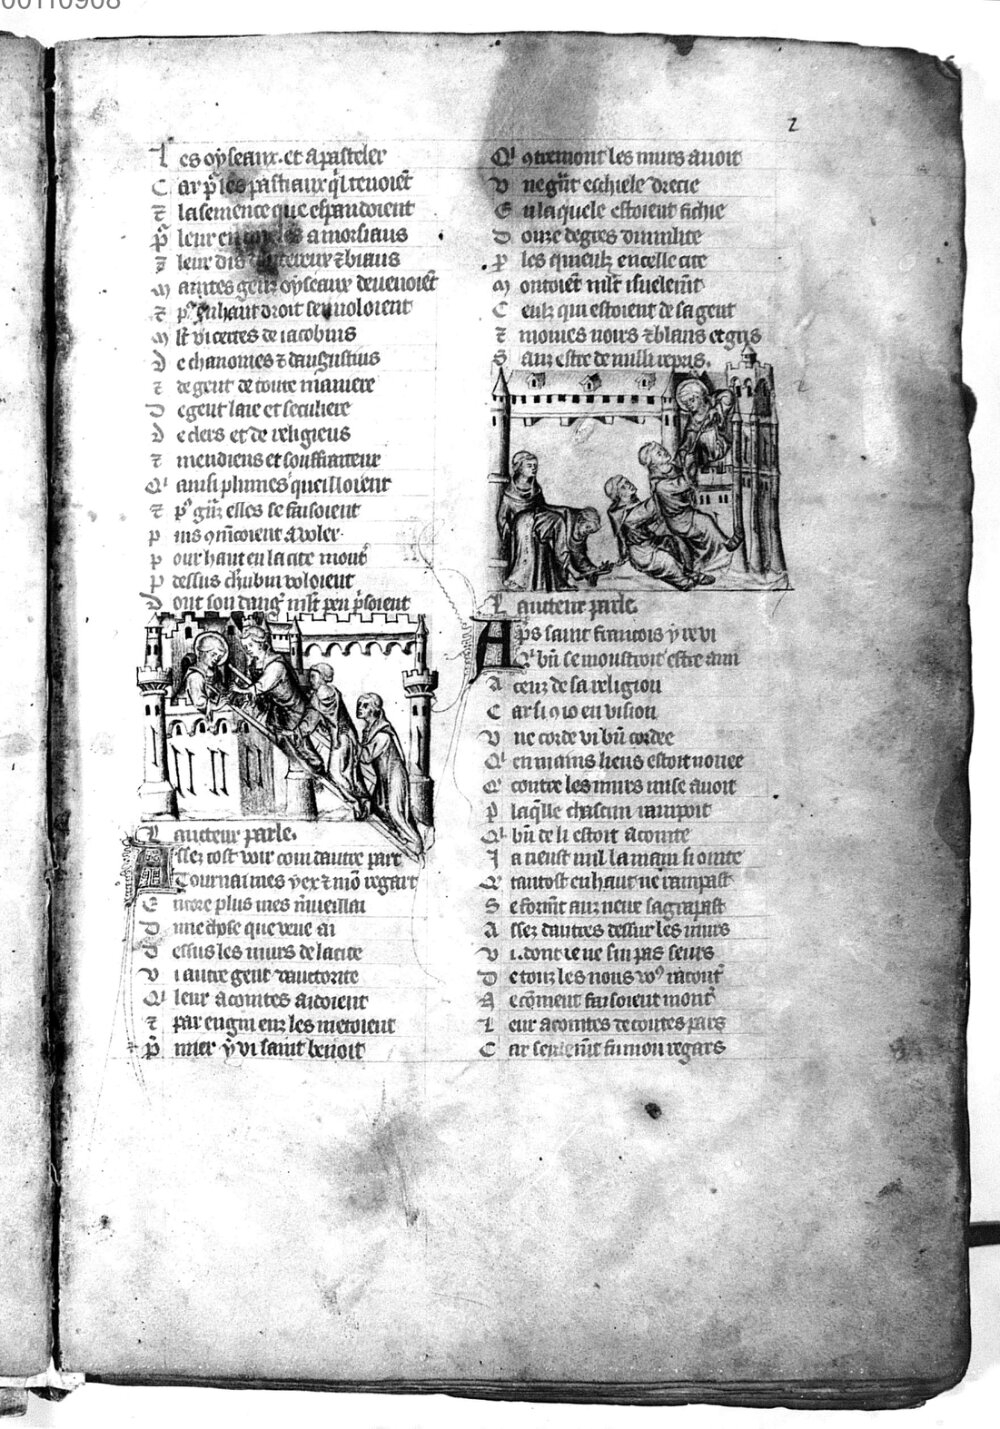 00110908
2
Les oyseaux. et apasteler
Car pͬ les pastiaux q̍l tenoiēt
⁊ la semence que espandoient
Pͬ leur en amorsiaus
⁊ leur dis ⁊ biaus
Maintes genz oyseaux deuenoiēt
⁊ pͥ en haut droit sen uoloient
Mlt vi certes de iacobins
De chanoines ⁊ daugustins
⁊ de gent de toute maniere
De gent laie et seculiere
De clers et de religieus
⁊ mendiens et souffraiteux
Qͥ ainsi plumes queilloient
⁊ pͥ elles se faisoient
Puis 9mēcoient a voler
Pour haut en la cite mont̄
Par dessus ch̄ubin voloient
Dont son danḡ mlt peu p̄soient
Laucteur parle.
Assez tost voir com dautre part
Tournai mes yex ⁊ mō regart
Encore plus mes m̄ueillai
Dune chose que veue ai
Dessus les murs de la cite
Vi autre gent dauctorite
Qͥ leur acointes aidoient
⁊ par engin eux les metoient
Premier y vi saint benoit
Qͥ 9tremont les murs auoit
Vne gn̄t eschiele drecie
En laquele estoient fichie
Douze degres dumilite
Par les quieulx en celle cite
Montoiēt mlt isnelemēt
Ceulz qui estoient de sa gent
⁊ moines noirs ⁊ blans et gris
Sanz estre de nulli repris.
2
Laucteur parle.
Aps saint francois y revi
Qͥ bn̄ se moustroit estre ami
A ceuz de sa religion
Car si 9 io en vision
Vne corde vi bn̄ cordee
Qͥ en mains lieus estoit nouee
Qͥ contre les murs mise auoit
Par laq̄lle chascun rampoit
Qͥ bn̄ de li estoit acointe
Ia neust nul la main si ointe
Qͥ tantost en haut ne rampast
Se formt̄ aux neux sagrapast
Assez dautres dessur les murs
Vi. dont ie ne sui pas seurs
De touz les nous vͦ racont̄
Ne cōment faisoient mont̄
Leur acointes de toutes pars
Car seulemt̄ fu mon regars